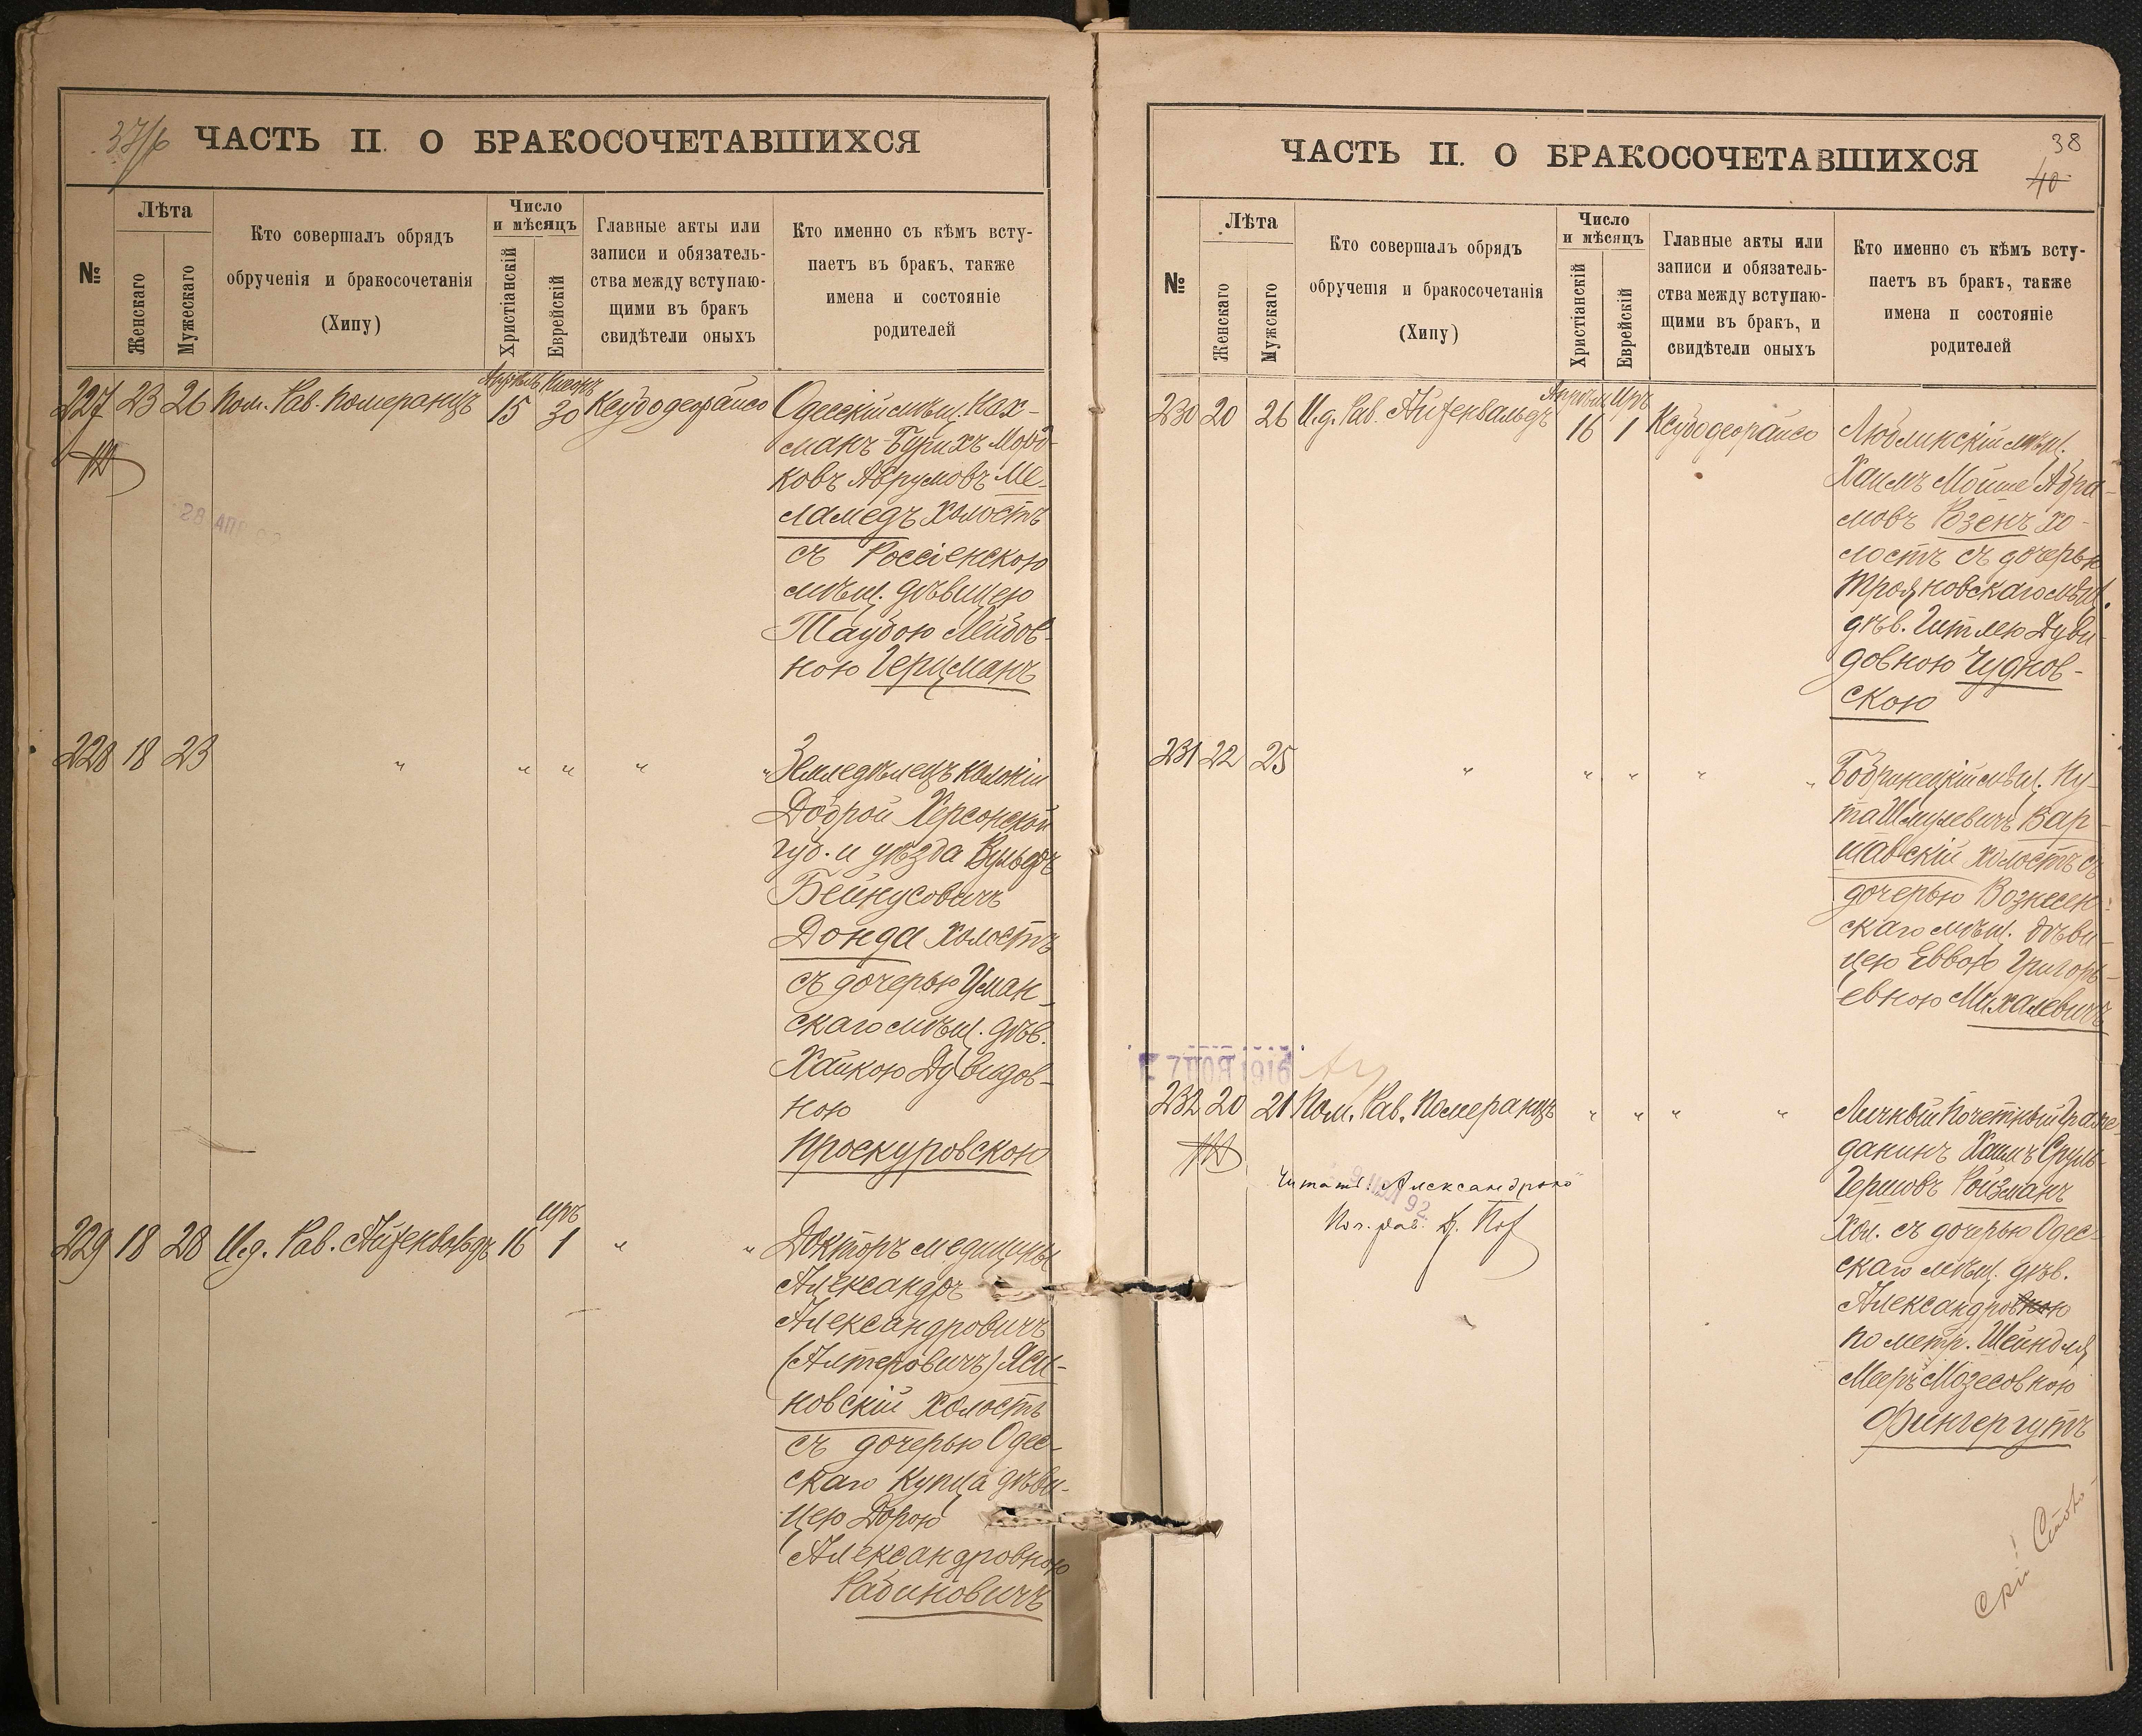 37/б ЧАСТЬ II. О БРАКОСОЧЕТАВШИХСЯ
№
Лѣта
Женскаго
Мужескаго
Кто совершалъ обрядъ
обрученія и бракосочетанія
(Хипу)
Число
и мѣсяцъ
Христіанскій
Еврейскій
Главные акты или
записи и обязатель-
ства между вступаю-
щими въ бракъ
свидѣтели оныхъ
Кто именно съ кѣмъ всту-
паетъ въ бракъ, также
имена и состояніе
родителей
Апрѣль
227 23 26 Пом. Рав. Померанцъ 15 30
Одесскій мѣщ. Нах-
манъ-Бурихъ Морд-
ковъ Аврумовъ Ме-
ламедъ холостъ
съ Россіенскою
мѣщ. дѣвицею
Таубою Лейбов-
ною Герцманъ
28 АПР
228 18 23 " " " " "
Земледѣлецъ колоніи
Доброй Херсонской
губ. и уѣзда Вульфъ
Бейнусовичъ
Донда холостъ
съ дочерью Уман-
скаго мѣщ. дѣв.
Хайкою Дувидов-
ною
Проскуровскою
Иръ
229 18 28 И.д. Рав. Айзенвальдъ 16 1 " "
Докторъ медицины
Александръ
Александровичъ
(Алтеровичъ) Яси-
новскій холостъ
съ дочерью Одес-
скаго купца дѣви-
цею Дорою
Александровною
Рабиновичъ
38
40
ЧАСТЬ II. О БРАКОСОЧЕТАВШИХСЯ
№
Лѣта
Женскаго
Мужскаго
Кто совершалъ обрядъ
обрученія и бракосочетанія
(Хипу)
Число
и мѣсяцъ
Христіанскій
Еврейскій
Главные акты или
записи и обязатель-
ства между вступаю-
щими въ бракъ, и
свидѣтели оныхъ
Кто именно съ кѣмъ всту-
паетъ въ бракъ, также
имена и состояніе
родителей
Апрѣль Иръ
230 20 26 И.д. Рав. Айзенвальдъ 16 1
Люблинскій мѣщ.
Хаимъ Мойше Абра-
мовъ Розенъ хо-
лостъ съ дочерью
Трояновскаго мѣщ.
дѣв. Гитлею Дуви-
довною Чуднов-
скою
231 22 25 " " " " "
Бобринецкій мѣщ. Ну-
та Шмулевичъ Вар-
шавскій холостъ съ
дочерью Вознесен-
скаго мѣщ. дѣви-
цею Еввою Григорь-
евною Михалевичъ
1916
232 20 21 Пом. Рав. Померанцъ " " " "
Личный Почетный Граж-
данинъ Хаимъ Сруль
Гершовъ Ройзманъ
Хол. съ дочерью Одес-
скаго мѣщ. дѣв.
Александровною
по метр. Шейндля
Мееръ Мозесовною
Фингергутъ
Читать: Александрою